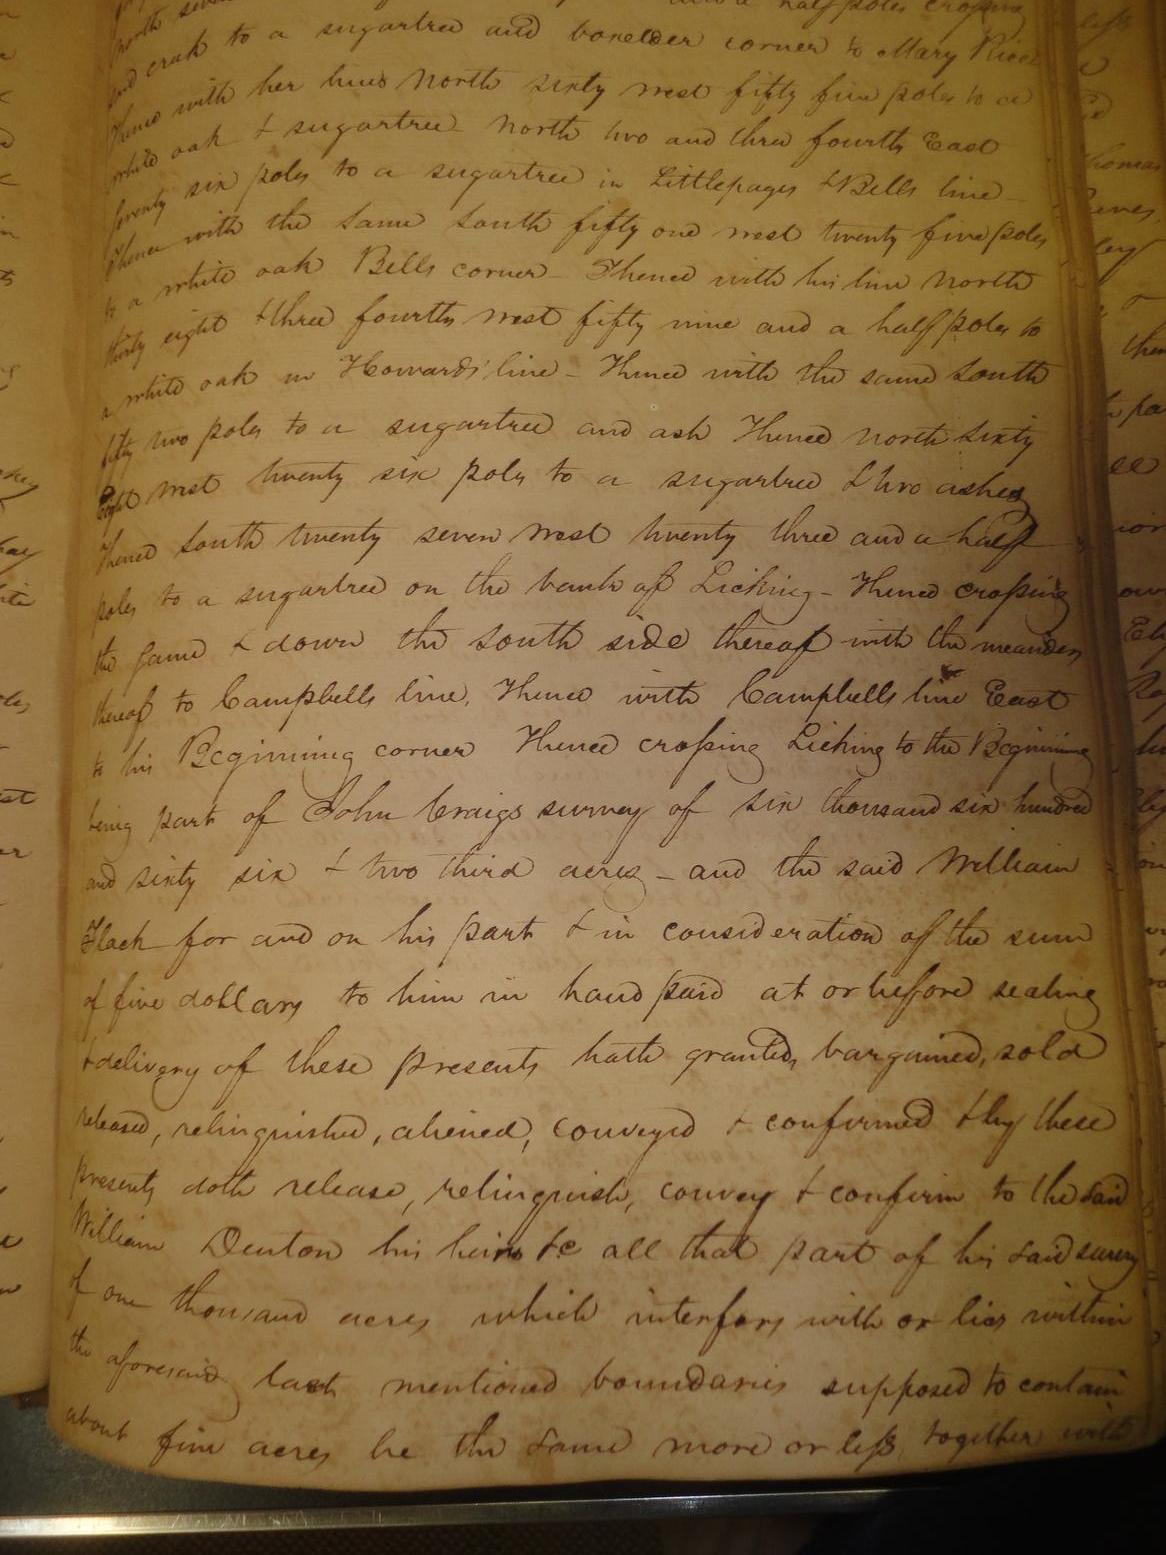 north seven and a half poles crossing
and creek to a sugartree and boxelder corner to Mary Rices
Thence with her lines North sixty west fifty five poles to a
white oak & sugartree North two and three fourths East
seventy six poles to a sugartree in Littlepages & Bells line
Thence with the same South fifty one west twenty five poles
to a white oak Bells corner - Thence with his line North
thirty eight & three fourths west fifty nine and a half poles to
a white oak in Howards line - Thence with the same South
fifty two poles to a sugartree and ash Thence north sixty
Eight west twenty six poles to a sugartree & two ashes
Thence South twenty seven west twenty three and a half
poles to a sugartree on the bank of Licking - Thence crossing
the same & down the South side thereof with the meanders
thereof to Campbells line, Thence with Campbells line East
to his Beginning corner Thence crossing Licking to the Beginning
being part of John Craigs survey of six thousand six hundred
and sixty six & two third acres - and the said William
Flack for and on his part & in consideration of the sum
of five dollars to him in hand paid at or before sealing
& delivery of these presents hath granted, bargained, sold
released, relinquished, aliened, conveyed & confirmed & by these
presents doth release, relinquish, convey & confirm to the said
William Denton his heirs &c all that part of his said survey
of one thousand acres which interfers with or lies within
the aforesaid last mentioned boundaries supposed to contain
about five acres be the same more or less, together with